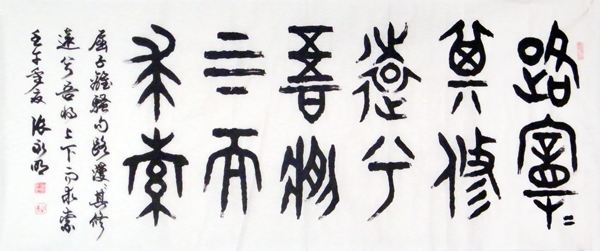 路曼〻
其修
遠兮
吾將
上下而
求索
屈子離騷句路漫〻其修
遠兮吾將上下而求索
壬午 張永明